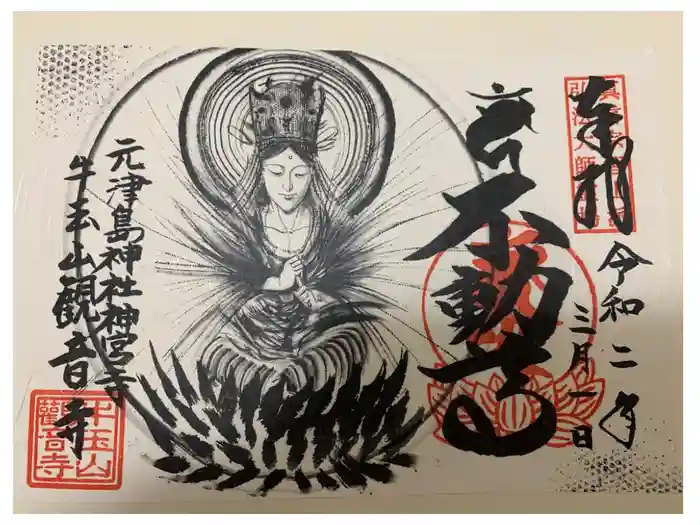 奉拝
弘法大師
令和二年
三月一日
不動尊
元津島神社神宮寺
牛玉山観音寺
牛玉山
觀音寺